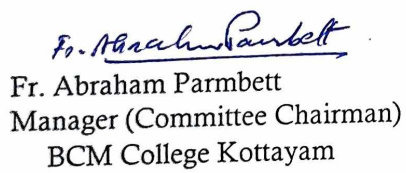 Fr. Abraham Parmbett
Fr. Abraham Parmbett
Manager (Committee Chairman)
BCM College Kottayam